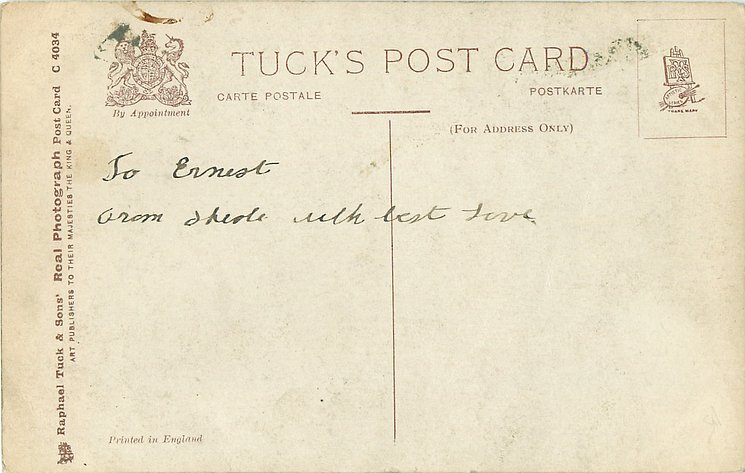 TUCK'S POST CARD
CARTE POSTALE
POSTKARTE
By Appointment
(FOR ADDRESS ONLY)
TRADE MARK
To Ernest
with best Love
Printed in England
Raphael Tuck & Sons' Real Photograph Post Card C 4034
ART PUBLISHERS TO THEIR MAJESTIES THE KING & QUEEN.